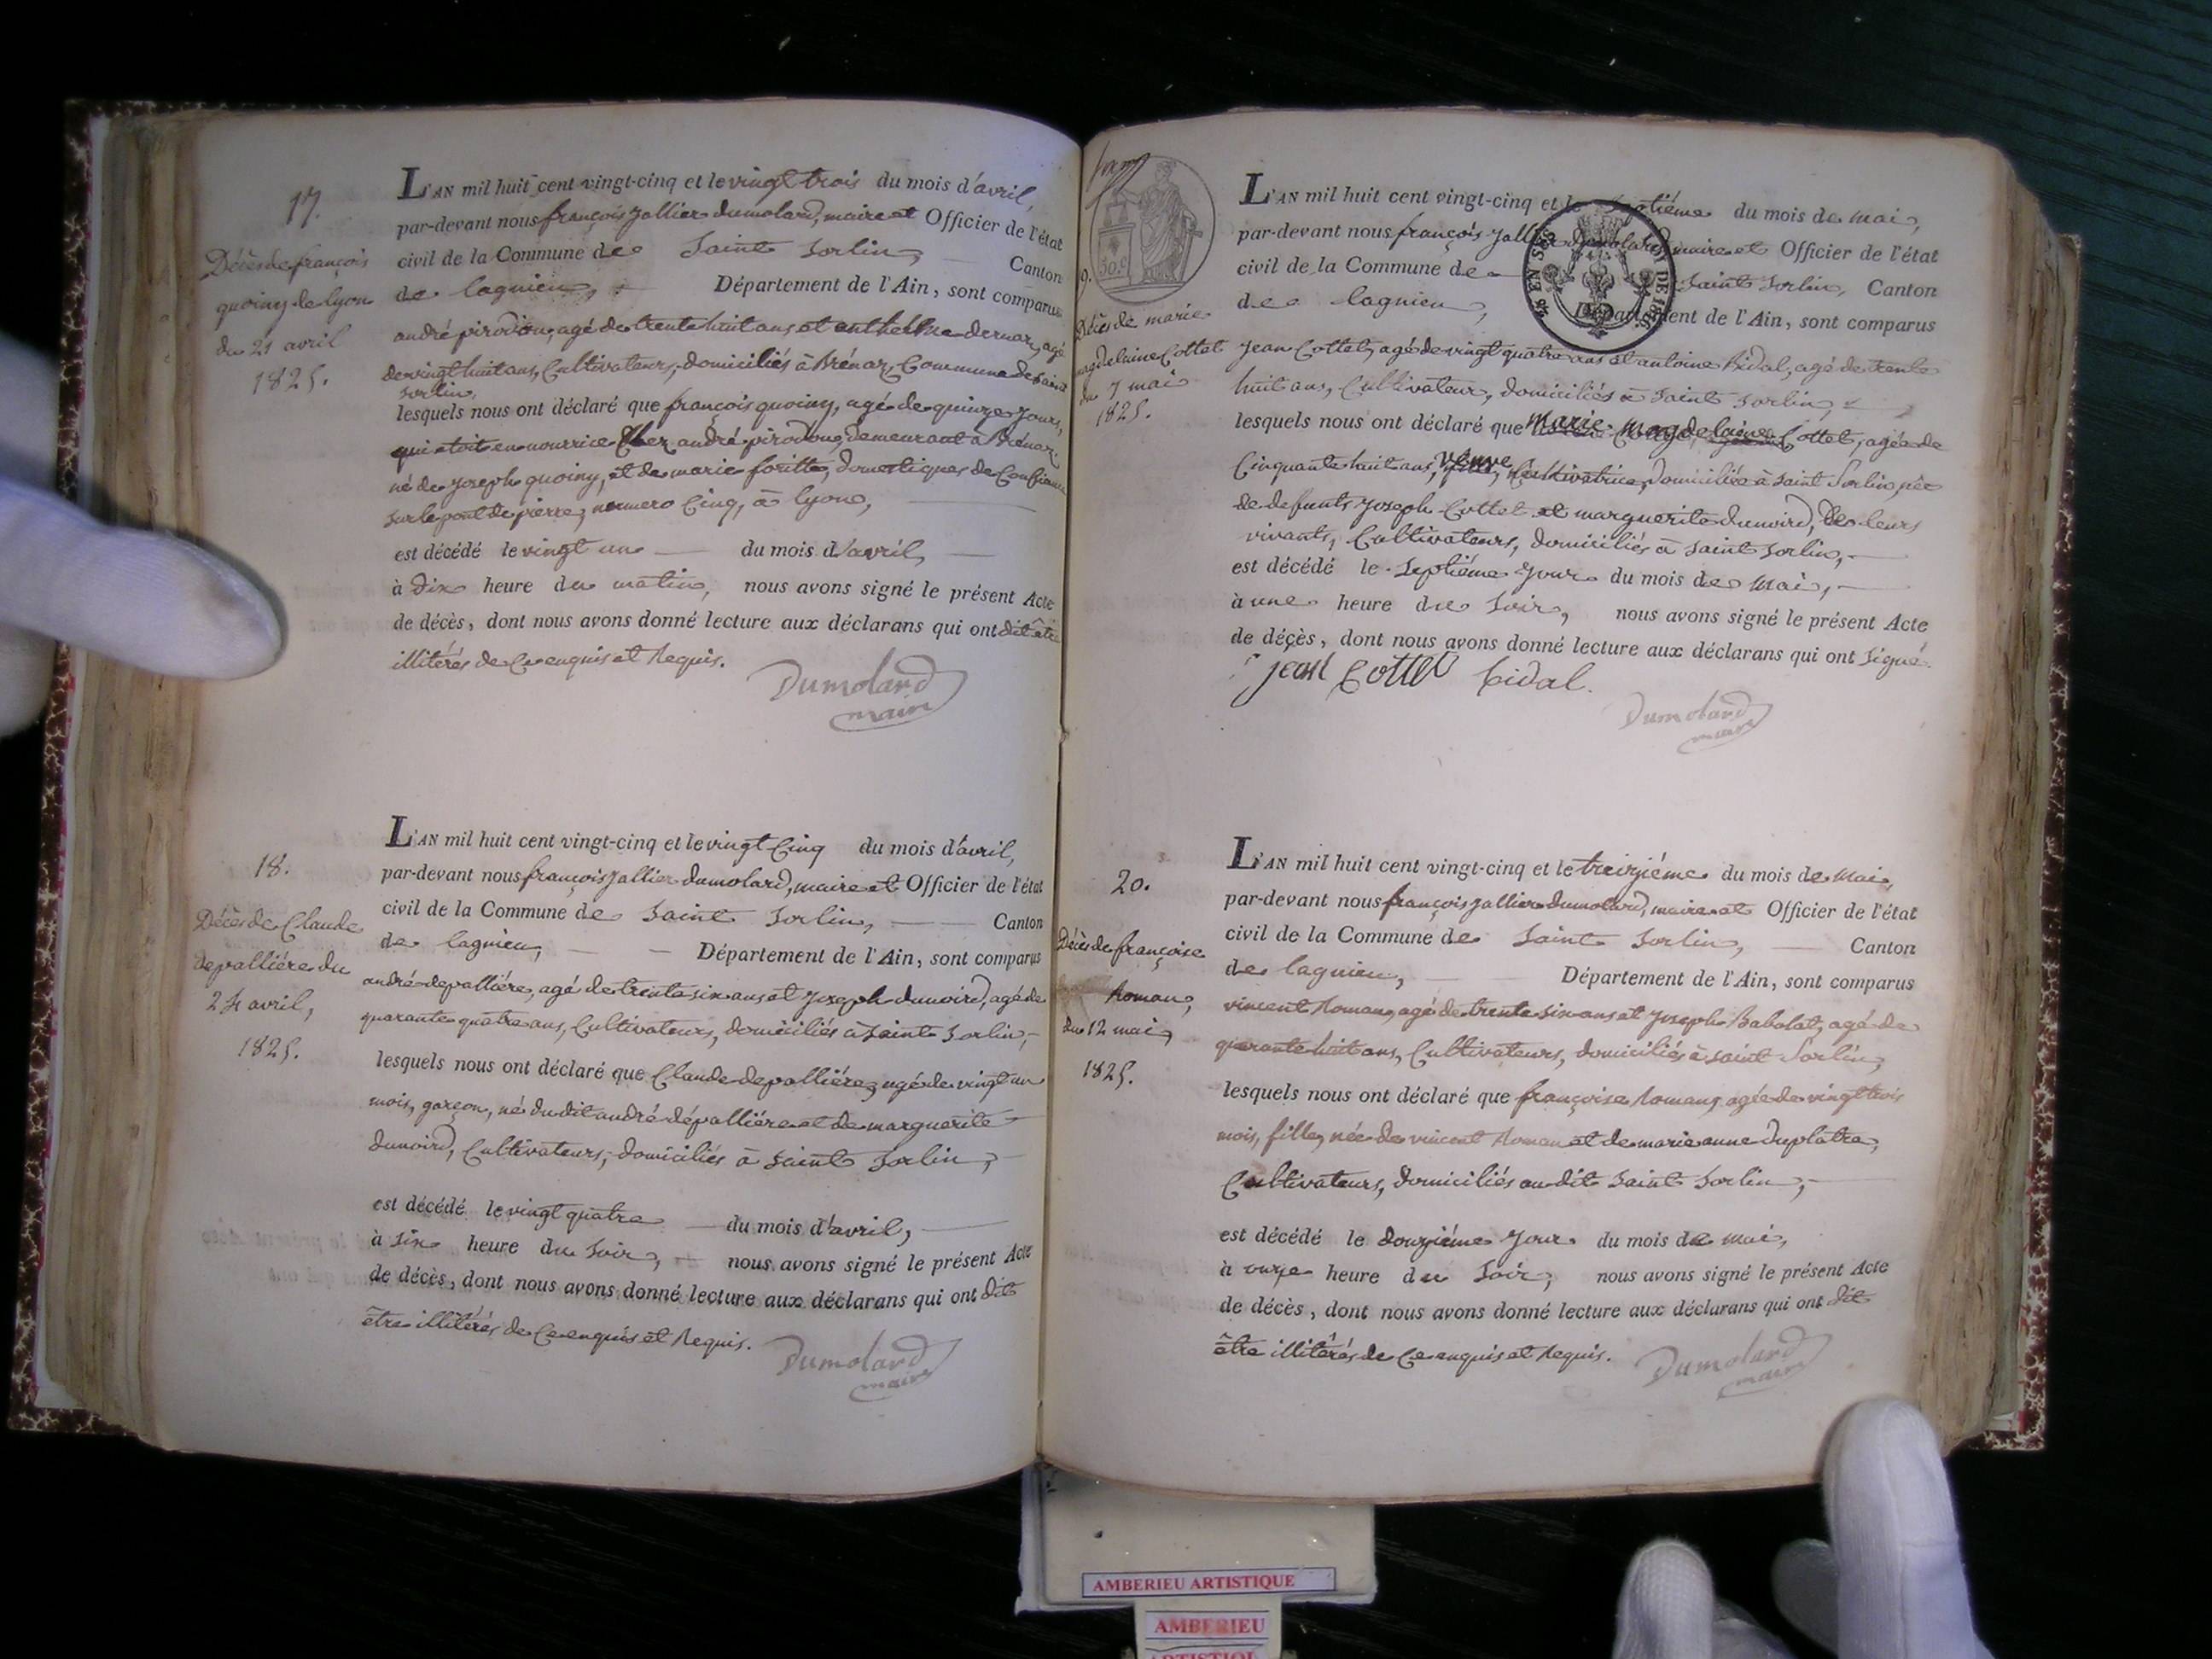 17.
Décès de françois
quoiny de lyon
du 21 avril
1825.
L'AN mil huit cent vingt-cinq et le vingt trois du mois d'avril,
par-devant nous françois jallier dumolard, maire et Officier de l'état
civil de la Commune de Saint Sorlin, Canton
de lagnieu, Département de l'Ain, sont comparus
andré pirodon, agé de trente huit ans et anthelme dernar, agé
de vingt huit ans, Cultivateurs, domiciliés à Brénaz, Commune de saint
sorlin,
lesquels nous ont déclaré que françois quoiny, agé de quinze jours,
qui etoit en nourrice Chez andré pirodon, demeurant à Brénaz,
né de joseph quoiny, et de marie foritte, domestiques de Confiance
sur le pont de pierre, numero Cinq, à lyon,
est décédé le vingt un du mois d'avril,
à dix heure du matin, nous avons signé le présent Acte
de décès, dont nous avons donné lecture aux déclarans qui ont dit être
illitérés de Ce enquis et Requis.
Dumolard
maire
18.
Décès de Claude
depalliére du
24 avril,
1825.
L'AN mil huit cent vingt-cinq et le vingt Cinq du mois d'avril,
par-devant nous françois jallier dumolard, maire et Officier de l'état
civil de la Commune de Saint Sorlin, Canton
de lagnieu, Département de l'Ain, sont comparus
andré depalliére, agé de trente six ans et joseph dunoird, agé de
quarante quatre ans, Cultivateurs, domiciliés à Saint Sorlin,
lesquels nous ont déclaré que Claude depalliére, agé de vingt un
mois, garçon, né du dit andré dépalliére et de marguerite
dunoird, Cultivateurs, domiciliés à Saint Sorlin,
est décédé le vingt quatre du mois d'avril,
à six heure du Soir, nous avons signé le présent Acte
de décès, dont nous avons donné lecture aux déclarans qui ont dit
être illitérés de Ce enquis et Requis.
Dumolard
maire
50.c
9.
Décès de marie
magdelaine Cottet
du 7 mai
1825.
L'AN mil huit cent vingt-cinq et le septiéme du mois de mai,
par-devant nous françois jallier dumolard, maire et Officier de l'état
civil de la Commune de Saint Sorlin, Canton
de lagnieu, Département de l'Ain, sont comparus
jean Cottet, agé de vingt quatre ans et antoine Bidal, agé de trente
huit ans, Cultivateur, domiciliés à Saint Sorlin,
lesquels nous ont déclaré que Marie Magdelaine Cottet, agée de
Cinquante huit ans, veuve, Cultivatrice, domiciliée à Saint Sorlin, née
de defunts joseph Cottet et marguerite dunoird, de leurs
vivants, Cultivateurs, domiciliés à Saint Sorlin,
est décédé le Septiéme jour du mois de mai,
à une heure du Soir, nous avons signé le présent Acte
de décès, dont nous avons donné lecture aux déclarans qui ont signé.
jean Cottet bidal.
Dumolard
maire
20.
Décès de françoise
Roman,
du 12 mai,
1825.
L'AN mil huit cent vingt-cinq et le treiziéme du mois de mai,
par-devant nous françois jallier dumolard, maire et Officier de l'état
civil de la Commune de Saint Sorlin, Canton
de lagnieu, Département de l'Ain, sont comparus
vincent Roman, agé de trente six ans et joseph Babolat, agé de
quarante huit ans, Cultivateurs, domiciliés à Saint Sorlin,
lesquels nous ont déclaré que françoise Roman, agée de vingt trois
mois, fille, née de vincent Roman et de marie anne duplatre,
Cultivateurs, domiciliés au dit Saint Sorlin,
est décédé le douziéme jour du mois de mai,
à onze heure du Soir, nous avons signé le présent Acte
de décès, dont nous avons donné lecture aux déclarans qui ont dit
être illitérés de Ce enquis et Requis.
Dumolard
maire
AMBERIEU ARTISTIQUE
AMBERIEU
ARTISTIQUE